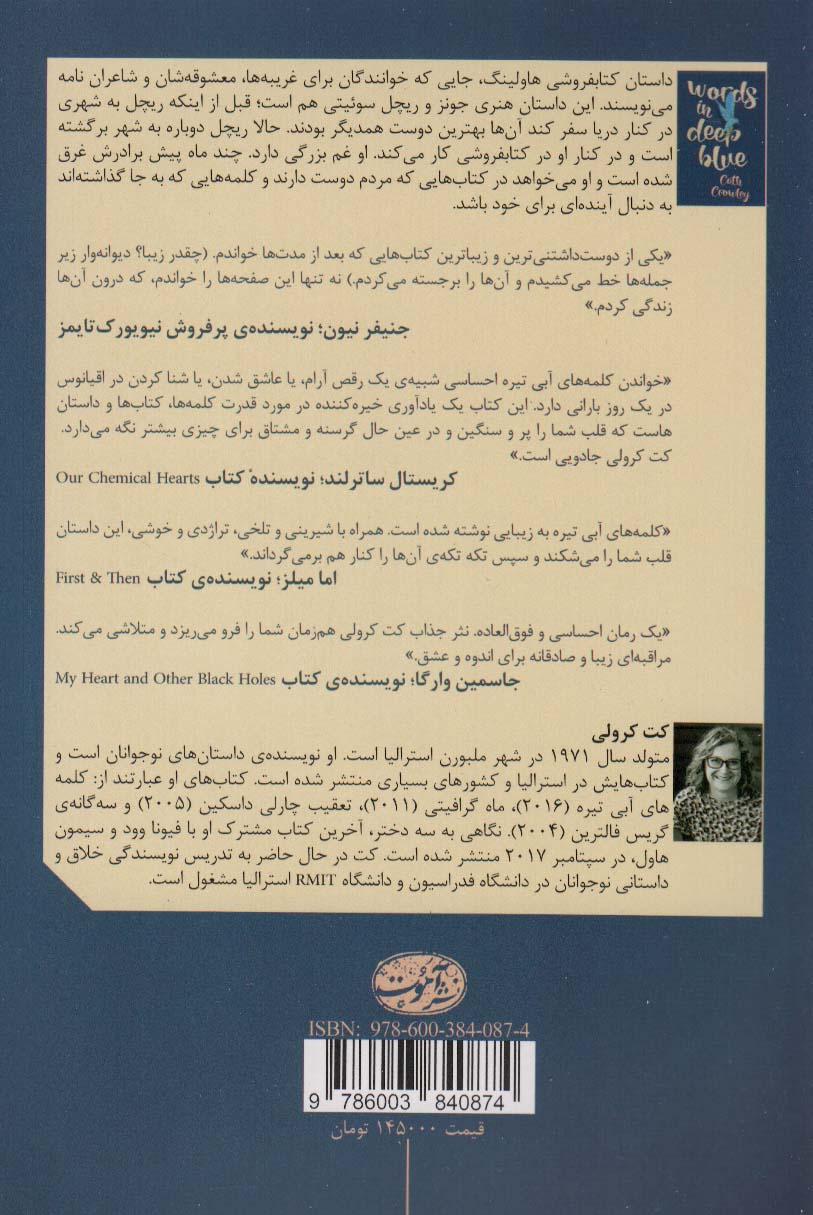 words
in
deep
blue
Cath
Crowley
داستان کتابفروشی هاولینگ، جایی که خوانندگان برای غریبه‌ها، معشوقه‌شان و شاعران نامه
می‌نویسند. این داستان هنری جونز و ریچل سوئیتی هم است؛ قبل از اینکه ریچل به شهری
در کنار دریا سفر کند آن‌ها بهترین دوست همدیگر بودند. حالا ریچل دوباره به شهر برگشته
است و در کنار او در کتابفروشی کار می‌کند. او غم بزرگی دارد. چند ماه پیش برادرش غرق
شده است و او می‌خواهد در کتاب‌هایی که مردم دوست دارند و کلمه‌هایی که به جا گذاشته‌اند
به دنبال آینده‌ای برای خود باشد.
«یکی از دوست‌داشتنی‌ترین و زیباترین کتاب‌هایی که بعد از مدت‌ها خواندم. (چقدر زیبا؟ دیوانه‌وار زیر
جمله‌ها خط می‌کشیدم و آن‌ها را برجسته می‌کردم.) نه تنها این صفحه‌ها را خواندم، که درون آن‌ها
زندگی کردم.»
جنیفر نیون؛ نویسنده‌ی پرفروش نیویورک‌تایمز
«خواندن کلمه‌های آبی تیره احساسی شبیه‌ی یک رقص آرام، یا عاشق شدن، یا شنا کردن در اقیانوس
در یک روز بارانی دارد. این کتاب یک یادآوری خیره‌کننده در مورد قدرت کلمه‌ها، کتاب‌ها و داستان
هاست که قلب شما را پر و سنگین و در عین حال گرسنه و مشتاق برای چیزی بیشتر نگه می‌دارد.
کت کرولی جادویی است.»
کریستال ساترلند؛ نویسندهٔ کتاب Our Chemical Hearts
«کلمه‌های آبی تیره به زیبایی نوشته شده است. همراه با شیرینی و تلخی، تراژدی و خوشی، این داستان
قلب شما را می‌شکند و سپس تکه تکه‌ی آن‌ها را کنار هم برمی‌گرداند.»
اما میلز؛ نویسنده‌ی کتاب First & Then
«یک رمان احساسی و فوق‌العاده. نثر جذاب کت کرولی هم‌زمان شما را فرو می‌ریزد و متلاشی می‌کند.
مراقبه‌ای زیبا و صادقانه برای اندوه و عشق.»
جاسمین وارگا؛ نویسنده‌ی کتاب My Heart and Other Black Holes
کت کرولی
متولد سال ۱۹۷۱ در شهر ملبورن استرالیا است. او نویسنده‌ی داستان‌های نوجوانان است و
کتاب‌هایش در استرالیا و کشورهای بسیاری منتشر شده است. کتاب‌های او عبارتند از: کلمه
های آبی تیره (۲۰۱۶)، ماه گرافیتی (۲۰۱۱)، تعقیب چارلی داسکین (۲۰۰۵) و سه‌گانه‌ی
گریس فالترین (۲۰۰۴). نگاهی به سه دختر، آخرین کتاب مشترک او با فیونا وود و سیمون
هاول، در سپتامبر ۲۰۱۷ منتشر شده است. کت در حال حاضر به تدریس نویسندگی خلاق و
داستانی نوجوانان در دانشگاه فدراسیون و دانشگاه RMIT استرالیا مشغول است.
نشر آموت
ISBN: 978-600-384-087-4
9 786003 840874
قیمت ۱۴۵۰۰۰ تومان